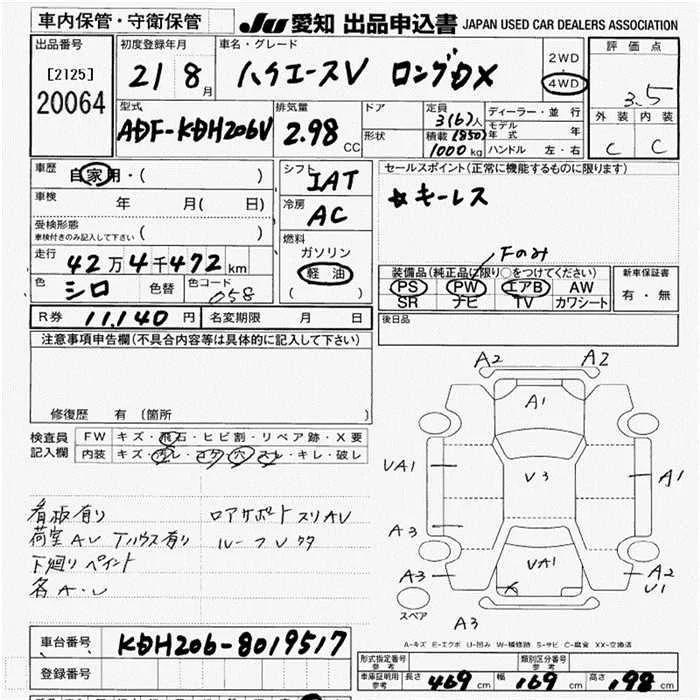 車内保管・守衛保管
JU 愛知 出品申込書 JAPAN USED CAR DEALERS ASSOCIATION
出品番号
[2125]
20064
初度登録年月
21 8月
車名・グレード
ハイエースV ロングDX
2WD
4WD
評価点
3.5
外装 内装
C C
型式
ADF-KDH206V
排気量
2.98 CC
ドア
形状
定員 3(6)人
積載 (850)
1000 kg
ディーラー・並行
モデル年式 年
ハンドル 左・右
車歴
自家用・( )
車検 年 月( 日)
受検形態
車検付きのみ記入して下さい ( )
走行
42万4千472km
色 シロ 色替 色コード 058
シフト
IAT
冷房
AC
燃料
ガソリン
軽油
( )
セールスポイント(正常に機能するものに限ります)
☆キーレス
Fのみ
装備品(純正品に限り○をつけてください)
PS PW エアB AW
SR ナビ TV カワシート
新車保証書
有・無
R券 11,140円 名変期限 月 日
後日品
注意事項申告欄(不具合内容等は具体的に記入して下さい)
修復歴 有(箇所 )
検査員記入欄
FW キズ・飛石・ヒビ割・リペア跡・X要
内装 キズ・汚レ・コゲ・穴・スレ・キレ・破レ
看板有り ロアサポートスリAU
荷室AU Tハウス有り ルーフレクタ
下廻りペイント
各A・U
A2 A2
A1
VA1
V3
A1
A3
VA1
A3
A2
U1
スペア
A3
A-キズ E-エクボ U-凹み W-補修跡 S-サビ C-腐食 XX-交換済
車台番号
KDH206-8019517
登録番号
形式指定番号
参考
類別区分番号
参考
車庫証明用
参考
長さ 469cm 幅 169cm 高さ 198cm